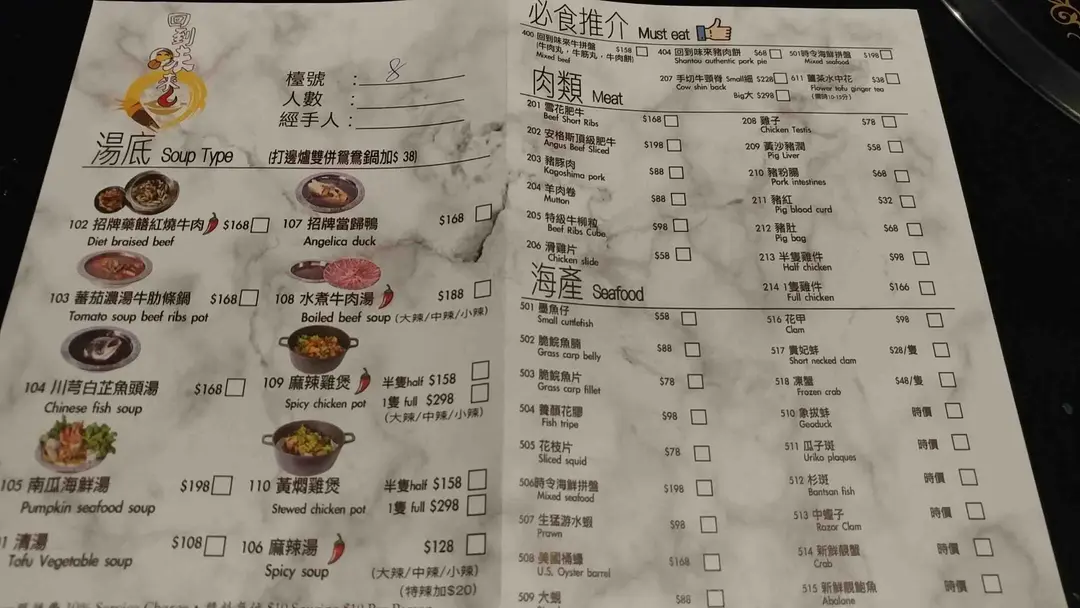 回到未來
檯號 : 8
人數 :
經手人 :
湯底 Soup Type (打邊爐雙併鴛鴦鍋加$ 38)
102 招牌藥膳紅燒牛肉 $168
Diet braised beef
107 招牌當歸鴨 $168
Angelica duck
103 蕃茄濃湯牛肋條鍋 $168
Tomato soup beef ribs pot
108 水煮牛肉湯 $188
Boiled beef soup (大辣/中辣/小辣)
104 川芎白芷魚頭湯 $168
Chinese fish soup
109 麻辣雞煲 半隻half $158
Spicy chicken pot 1隻 full $298
(大辣/中辣/小辣)
105 南瓜海鮮湯 $198
Pumpkin seafood soup
110 黃燜雞煲 半隻half $158
Stewed chicken pot 1隻 full $298
1 清湯 $108
Tofu Vegetable soup
106 麻辣湯 $128
Spicy soup (大辣/中辣/小辣)
(特辣加$20)
必食推介 Must eat
400 回到味來牛拼盤 $158
(牛肉丸，牛筋丸，牛肉餅)
Mixed beef
404 回到味來豬肉餅 $68
Shantou authentic pork pie
501時令海鮮拼盤 $198
Mixed seafood
207 手切牛頸脊 Small細 $228
Cow shin back Big大 $298
611 薑茶水中花 $38
Flower tofu ginger tea
肉類 Meat
201 雪花肥牛 $168
Beef Short Ribs
202 安格斯頂級肥牛 $198
Angus Beef Sliced
203 豬豚肉 $88
Kagoshima pork
204 羊肉卷 $88
Mutton
205 特級牛柳粒 $98
Beef Ribs Cube
206 滑雞片 $58
Chicken slide
208 雞子 $78
Chicken Testis
209 黃沙豬潤 $58
Pig Liver
210 豬粉腸 $68
Pork intestines
211 豬紅 $32
Pig blood curd
212 豬肚 $68
Pig bag
213 半隻雞件 $98
Half chicken
214 1隻雞件 $166
Full chicken
海產 Seafood
501 墨魚仔 $58
Small cuttlefish
502 脆鯇魚腩 $88
Grass carp belly
503 脆鯇魚片 $78
Grass carp fillet
504 養顏花膠 $98
Fish tripe
505 花枝片 $78
Sliced squid
506時令海鮮拼盤 $198
Mixed seafood
507 生猛游水蝦 $98
Prawn
508 美國桶蠔 $168
U.S. Oyster barrel
509 大蜆 $88
516 花甲 $98
Clam
517 貴妃蚌 $28/隻
Short necked clam
518 凍蟹 $48/隻
Frozen crab
510 象拔蚌 時價
Geoduck
511 瓜子斑 時價
Uriko plaques
512 杉斑 時價
Bantsan fish
513 中蟶子 時價
Razor Clam
514 新鮮靚蟹 時價
Crab
515 新鮮靚鮑魚 時價
Abalone